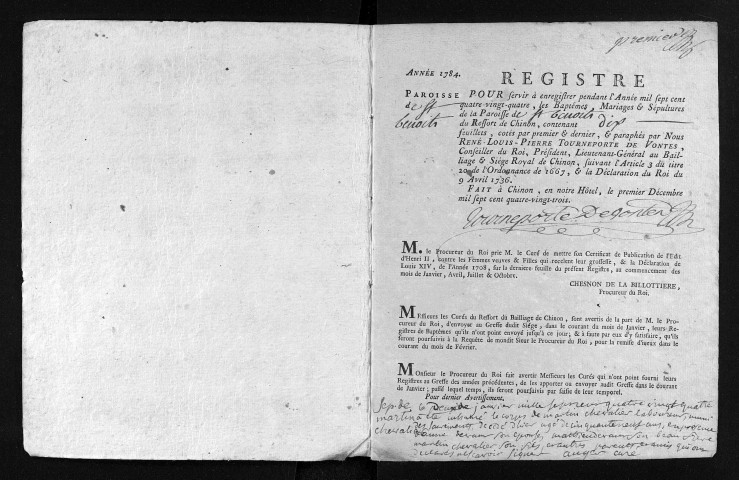 premier
ANNÉE 1784.
REGISTRE
PAROISSE
de St
benoist
POUR servir à enregistrer pendant l'Année mil sept cent
quatre-vingt-quatre, les Baptêmes, Mariages & Sépultures
de la Paroisse de St benoist
du Ressort de Chinon, contenant dix
feuillets, cotés par premier & dernier, & paraphés par Nous
RENÉ-LOUIS-PIERRE TOURNEPORTE DE VONTES,
Conseiller du Roi, Président, Lieutenant-Général au Bail-
liage & Siége Royal de Chinon, suivant l'Article 3 du titre
20 de l'Ordonnance de 1667, & la Déclaration du Roi du
9 Avril 1736.
FAIT à Chinon, en notre Hôtel, le premier Décembre
mil sept cent quatre-vingt-trois.
Tourneporte Devontes
M. le Procureur du Roi prie M. le Curé de mettre son Certificat de Publication de l'Edit
d'Henri II, contre les Femmes veuves & Filles qui recelent leur grossesse, & la Déclaration de
Louis XIV, de l'Année 1708, sur la derniere feuille du présent Registre, au commencement des
mois de Janvier, Avril, Juillet & Octobre.
CHESNON DE LA BILLOTTIERE,
Procureur du Roi.
MEssieurs les Curés du Ressort du Bailliage de Chinon, sont avertis de la part de M. le Pro-
cureur du Roi, d'envoyer au Greffe dudit Siége, dans le courant du mois de Janvier, leurs Re-
gistres de Baptêmes qu'ils n'ont point envoyé jusqu'à ce jour; & à faute par eux d'y satisfaire, qu'ils
seront poursuivis à la Requête de mondit Sieur le Procureur du Roi, pour la remise d'iceux dans le
courant du mois de Février.
MOnsieur le Procureur du Roi fait avertir Messieurs les Curés qui n'ont point fourni leurs
Registres au Greffe des années précédentes, de les apporter ou envoyer audit Greffe dans le courant
de Janvier; passé lequel temps, ils seront poursuivis par saisie de leur temporel.
Pour dernier Avertissement.
Sep. de
martin
chevalier
le janvier mille sept cent quatre vingt quatre
a été inhumé le corps de martin chevalier laboureur, muni
des sacrements décédé d'hier agé de cinquante neuf ans, en présence
son épouse, son beau frère
martin chevalier son fils et autres parents et amis qui ont
déclaré ne savoir signer auger curé